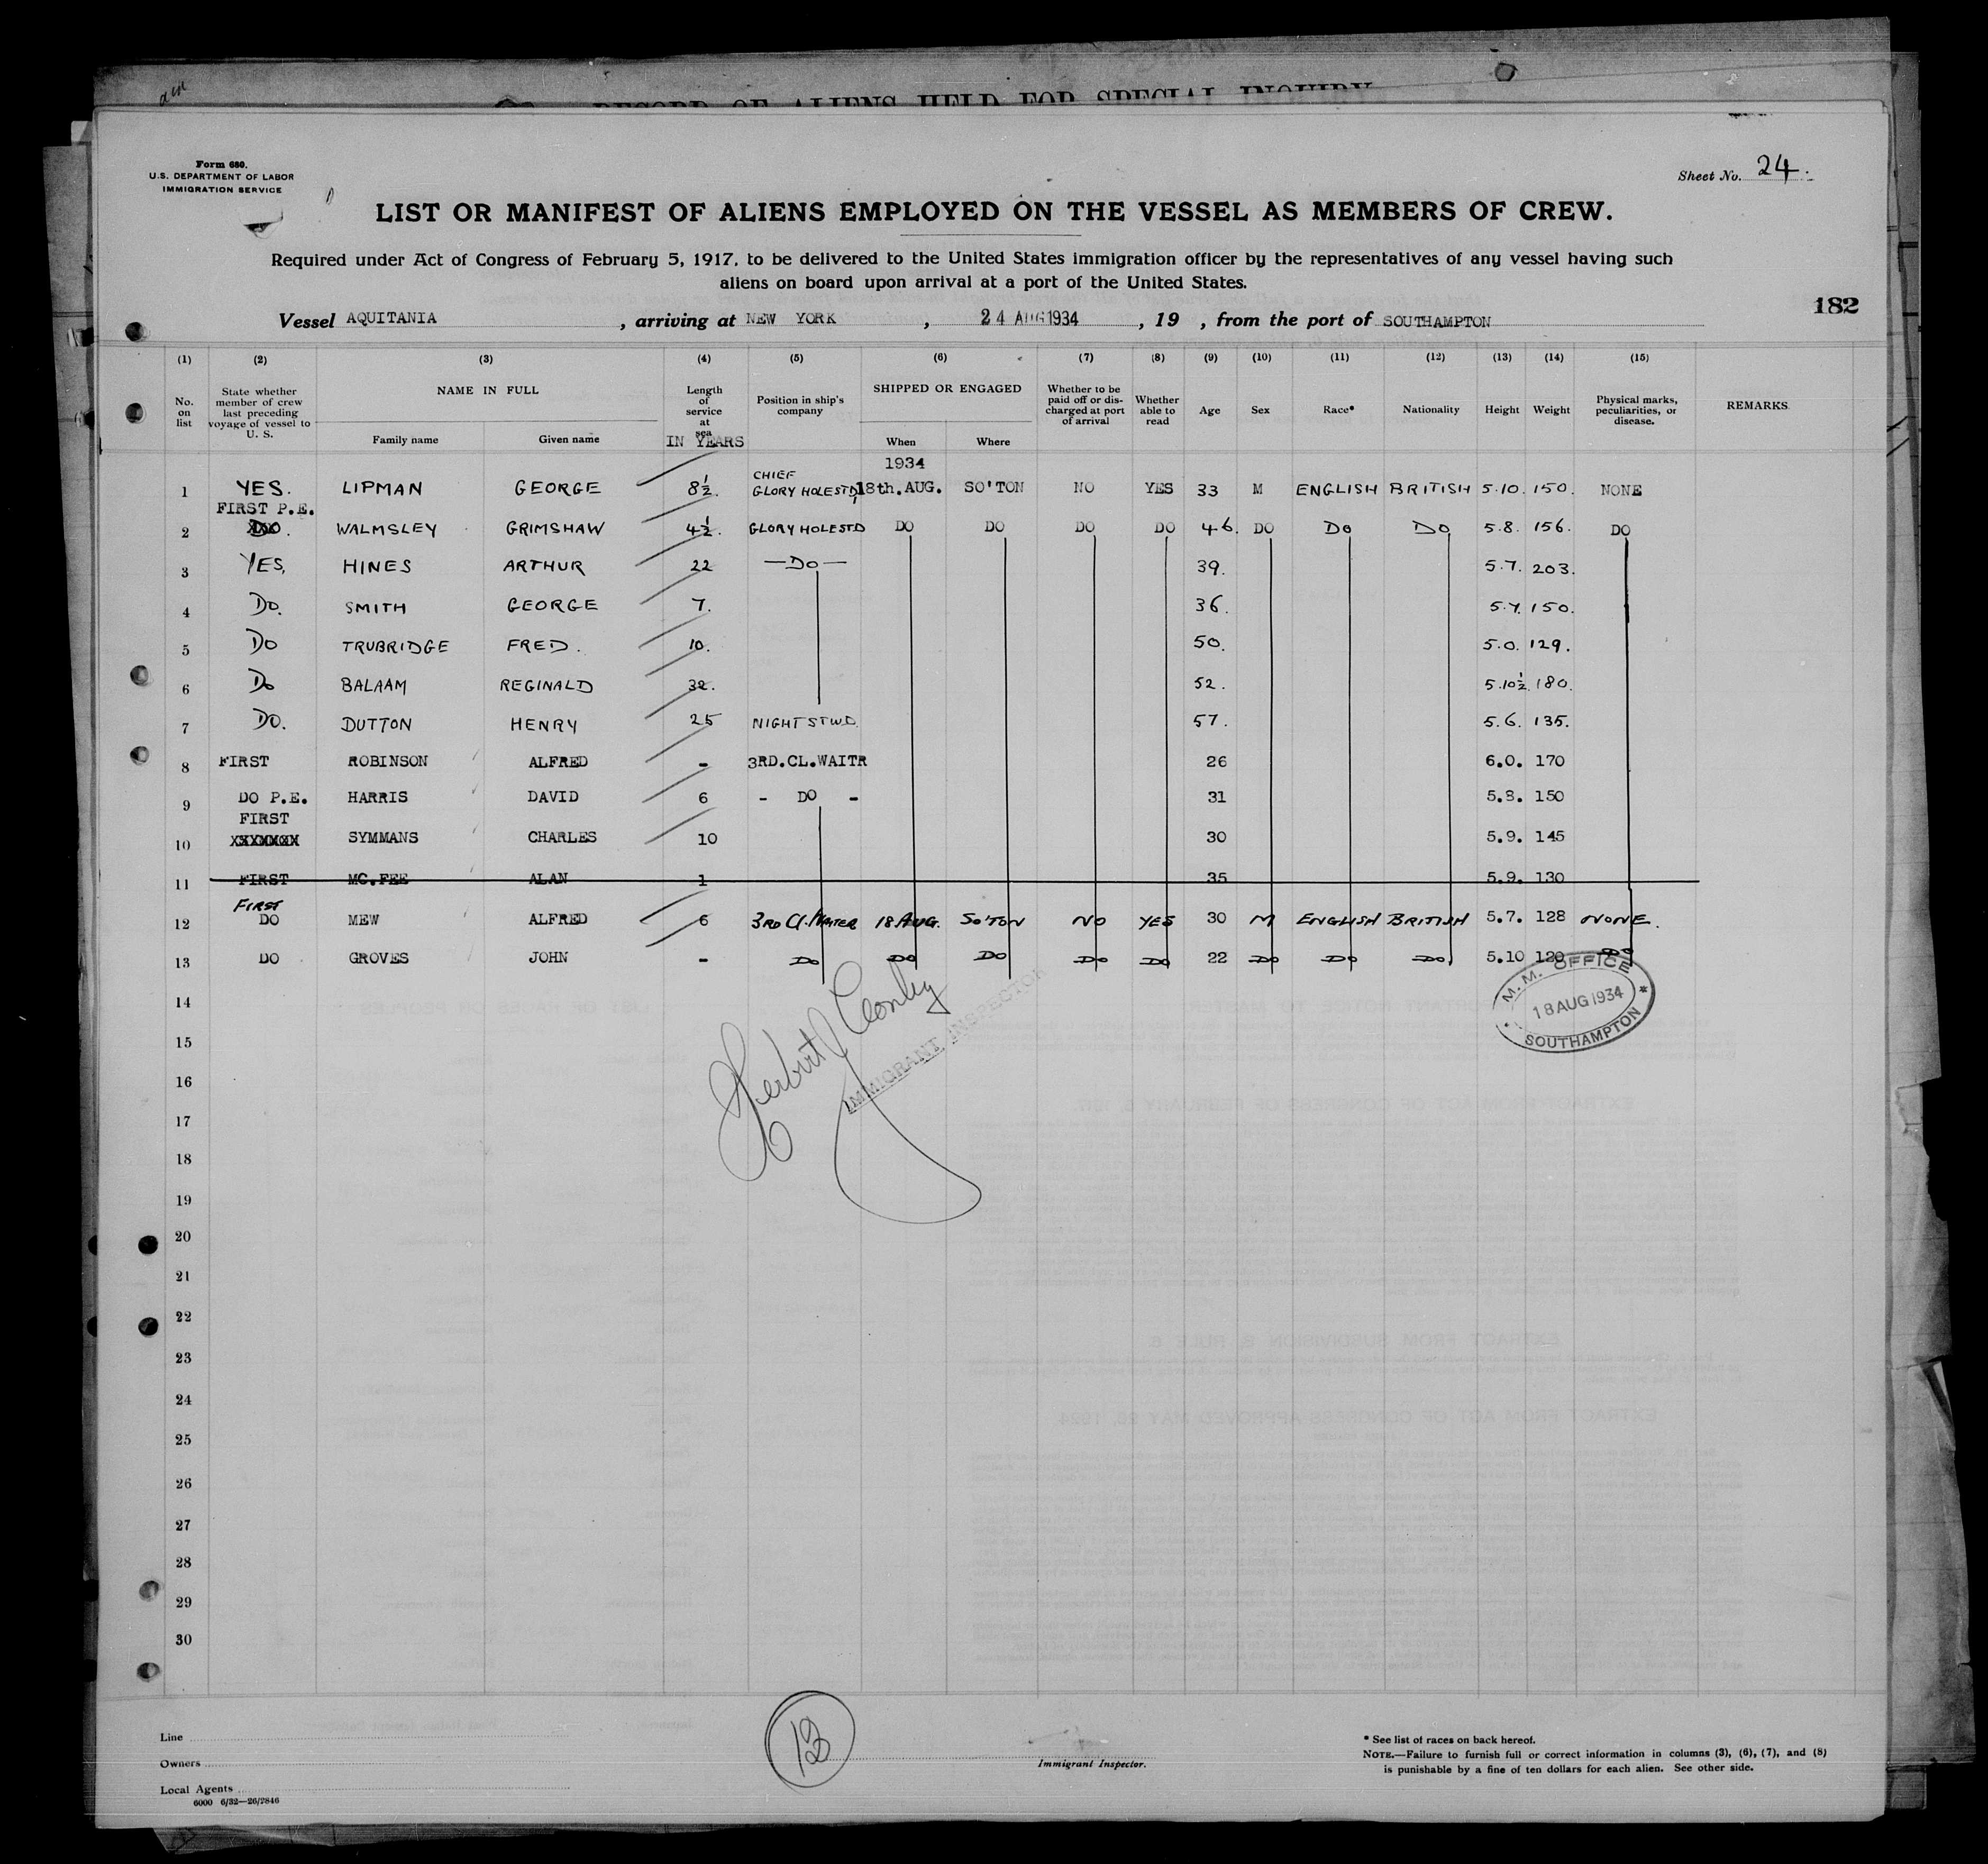 RECORD OF ALIENS HELD FOR SPECIAL INQUIRY
Form 680.
U.S. DEPARTMENT OF LABOR
IMMIGRATION SERVICE
Sheet No. 24.
LIST OR MANIFEST OF ALIENS EMPLOYED ON THE VESSEL AS MEMBERS OF CREW.
Required under Act of Congress of February 5, 1917, to be delivered to the United States immigration officer by the representatives of any vessel having such
aliens on board upon arrival at a port of the United States.
182
Vessel AQUITANIA, arriving at NEW YORK, 24 AUG 1934, 19 , from the port of SOUTHAMPTON
(1) (2) (3) (4) (5) (6) (7) (8) (9) (10) (11) (12) (13) (14) (15)
No. on list
State whether member of crew last preceding voyage of vessel to U. S.
NAME IN FULL
Family name Given name
Length of service at sea
IN YEARS
Position in ship's company
SHIPPED OR ENGAGED
When Where
Whether to be paid off or discharged at port of arrival
Whether able to read
Age Sex Race* Nationality Height Weight
Physical marks, peculiarities, or disease.
REMARKS
1934
1 YES. LIPMAN GEORGE 8½. CHIEF GLORY HOLE STD. 18th. AUG. SO'TON NO YES 33 M ENGLISH BRITISH 5.10. 150. NONE
FIRST P.E.
2 DO. WALMSLEY GRIMSHAW 4½. GLORY HOLE STD DO DO DO DO 46. DO DO DO 5.8. 156. DO
3 YES, HINES ARTHUR 22 —DO— 39. 5.7. 203.
4 DO. SMITH GEORGE 7. 36. 5.7. 150.
5 DO TRUBRIDGE FRED. 10. 50. 5.0. 129.
6 DO BALAAM REGINALD 32. 52. 5.10½ 180.
7 DO. DUTTON HENRY 25 NIGHT STWD. 57. 5.6. 135.
8 FIRST ROBINSON ALFRED - 3RD.CL.WAITR 26 6.0. 170
9 DO P.E. HARRIS DAVID 6 - DO - 31 5.8. 150
FIRST
10 SYMMANS CHARLES 10 30 5.9. 145
11 FIRST MC.FEE ALAN 1 35 5.9. 130
FIRST
12 DO MEW ALFRED 6 3RD Cl. WAITER 18 AUG. SO'TON NO YES 30 M ENGLISH BRITISH 5.7. 128 NONE.
13 DO GROVES JOHN - DO DO DO DO DO 22 DO DO DO 5.10 120 DO
M. M. OFFICE
18 AUG 1934
SOUTHAMPTON
14
IMMIGRANT INSPECTOR
15
16
17
18
19
20
21
22
23
24
25
26
27
28
29
30
Line
Owners
Local Agents
6000 6/32—26/2846
12
Immigrant Inspector.
* See list of races on back hereof.
NOTE.—Failure to furnish full or correct information in columns (3), (6), (7), and (8)
is punishable by a fine of ten dollars for each alien. See other side.